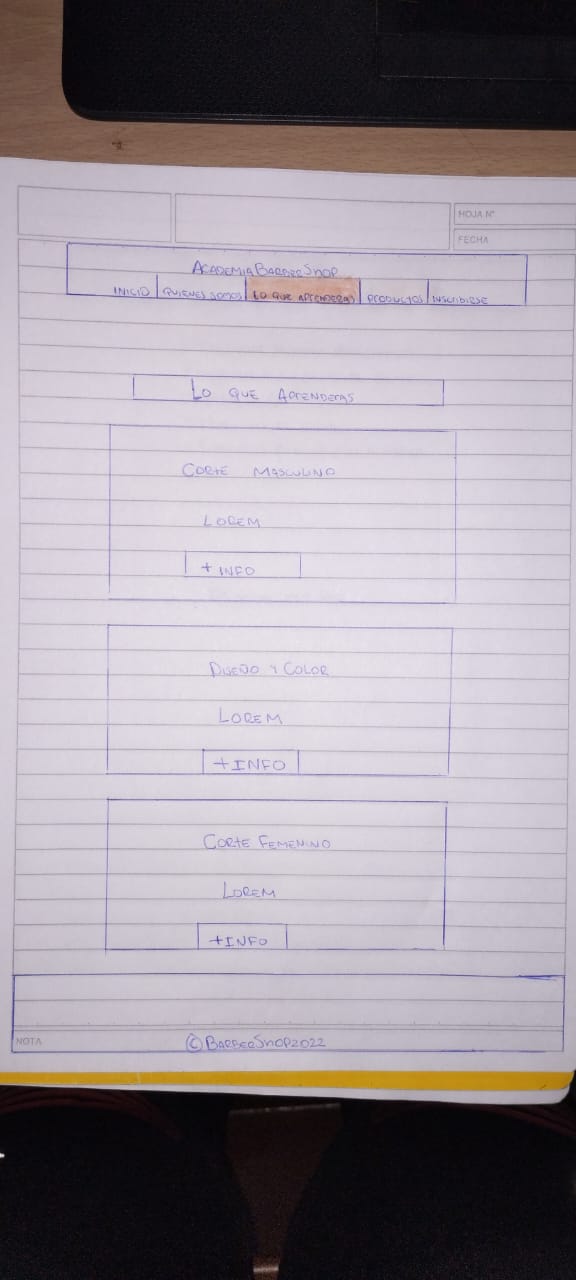 HOJA N°
FECHA
ACADEMIA BARBERSHOP
INICIO QUIENES SOMOS LO QUE APRENDERAS PRODUCTOS INSCRIBIRSE
LO QUE APRENDERAS
CORTE MASCULINO
LOREM
+ INFO
DISEÑO Y COLOR
LOREM
+INFO
CORTE FEMENINO
LOREM
+INFO
NOTA
© BARBERSHOP2022